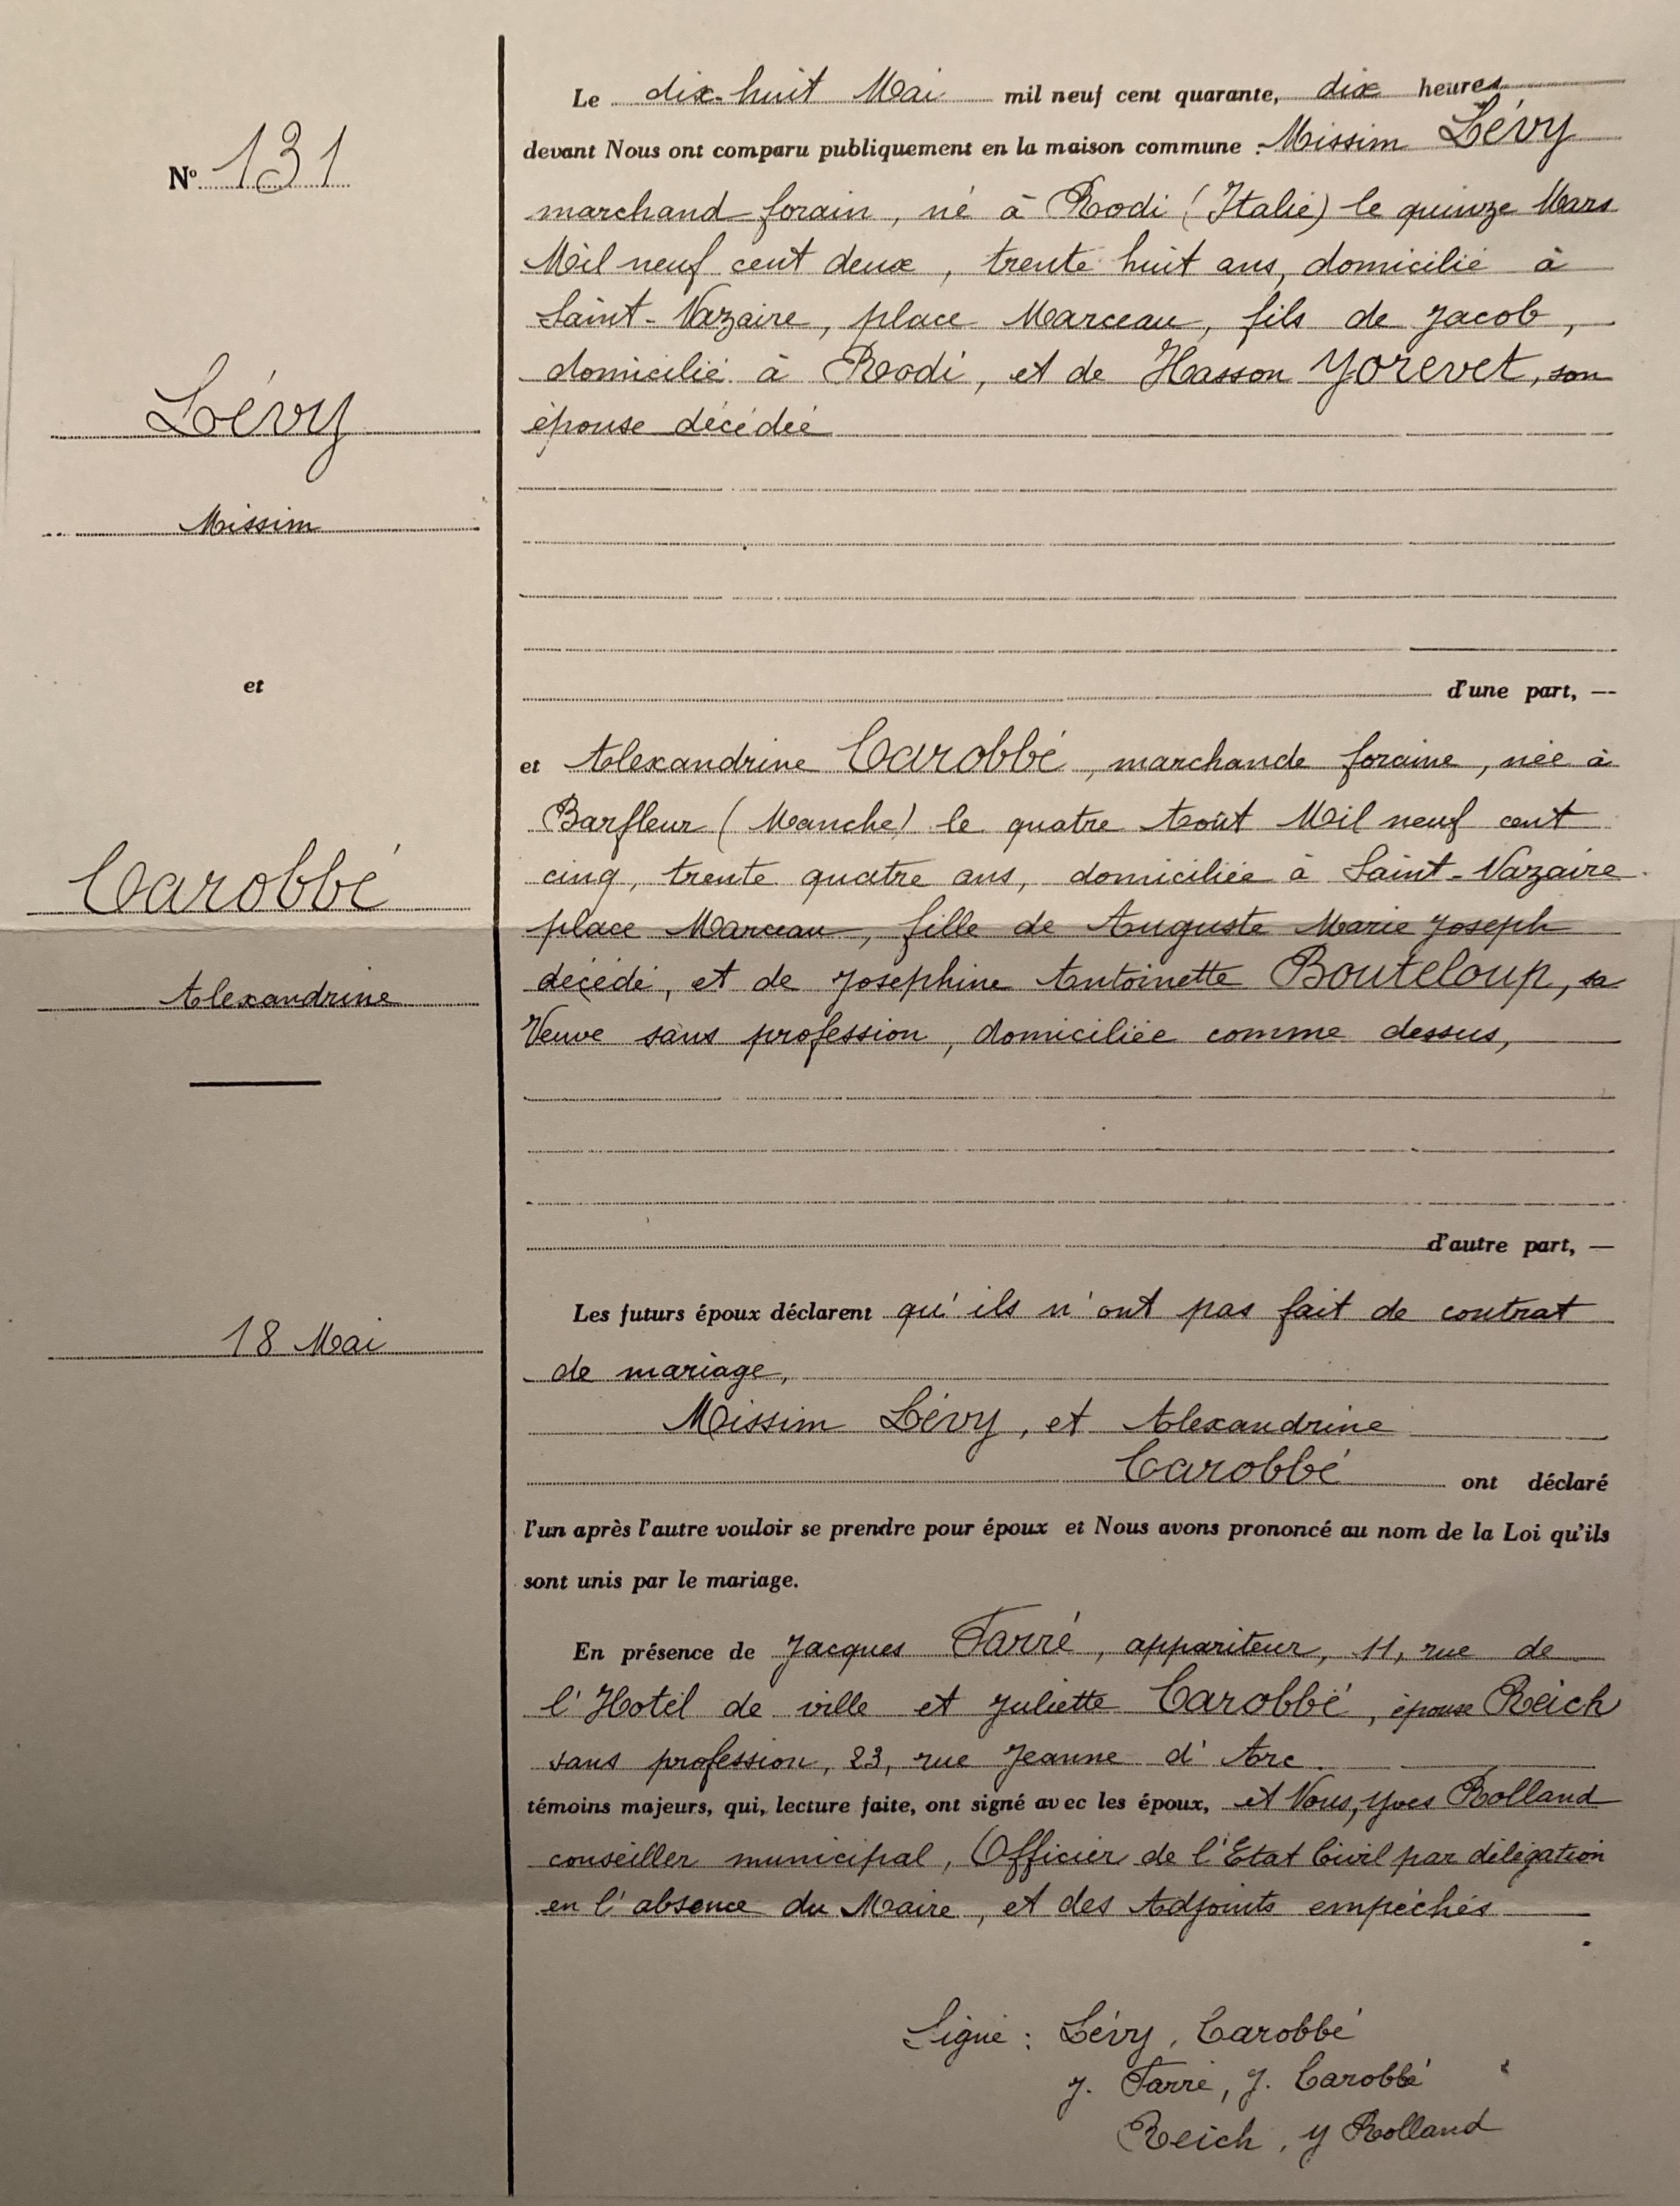 Le dix-huit Mai mil neuf cent quarante, dix heures
devant Nous ont comparu publiquement en la maison commune : Missim Lévy
marchand forain, né à Rodi (Italie) le quinze Mars
Mil neuf cent deux, trente huit ans, domicilié à
Saint-Nazaire, place Marceau, fils de Jacob,
domicilié à Rodi, et de Hasson Yorevet, son
épouse décédée
d'une part, —
et Alexandrine Carobbé, marchande foraine, née à
Barfleur (Manche) le quatre Août Mil neuf cent
cinq, trente quatre ans, domiciliée à Saint-Nazaire
place Marceau, fille de Auguste Marie Joseph
décédé, et de Joséphine Antoinette Bouteloup, sa
Veuve sans profession, domiciliée comme dessus,
d'autre part, —
Les futurs époux déclarent qu'ils n'ont pas fait de contrat
de mariage,
Missim Lévy, et Alexandrine
Carobbé ont déclaré
l'un après l'autre vouloir se prendre pour époux et Nous avons prononcé au nom de la Loi qu'ils
sont unis par le mariage.
En présence de Jacques Farré, appariteur, 11, rue de
l'Hotel de ville et Juliette Carobbé, épouse Reich
sans profession, 23, rue Jeanne d'Arc.
témoins majeurs, qui, lecture faite, ont signé avec les époux, et Nous, Yves Rolland
conseiller municipal, Officier de l'Etat Civil par délégation
en l'absence du Maire, et des Adjoints empêchés
Signé : Lévy, Carobbé
J. Farré, J. Carobbé
Reich, Y Rolland
N° 131
Lévy
Missim
et
Carobbé
Alexandrine
18 Mai